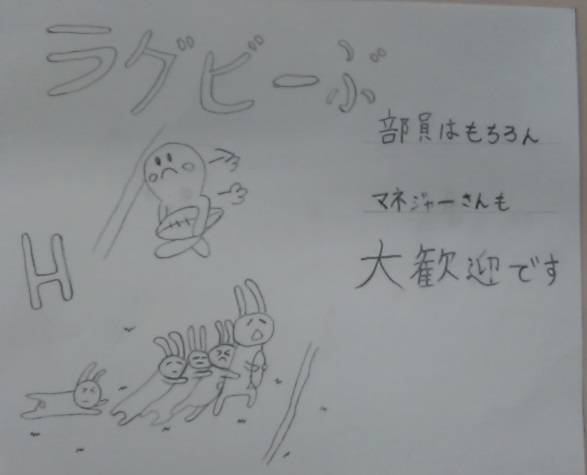 ラグビーぶ
部員はもちろん
マネジャーさんも
大歓迎です
H